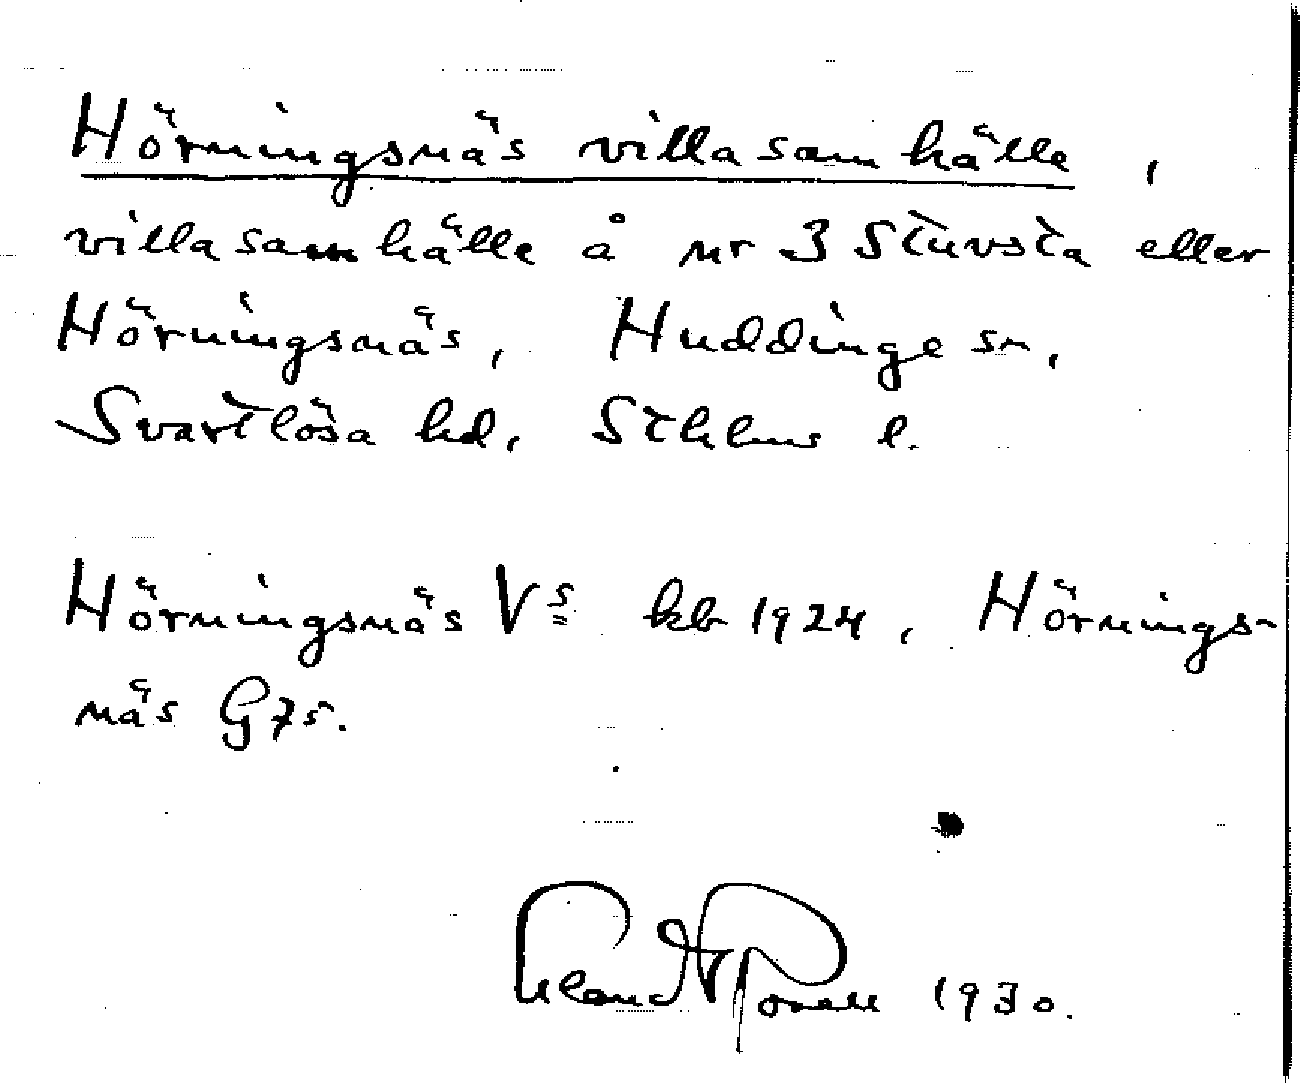 Hörningsnäs villasamhälle,
villasamhälle å nr 3 Stuvsta eller
Hörningsnäs, Huddinge sn,
Svartlösa hd, Sthlms l.
Hörningsnäs Vs kb 1924, Hörnings-
näs G75.
1930.